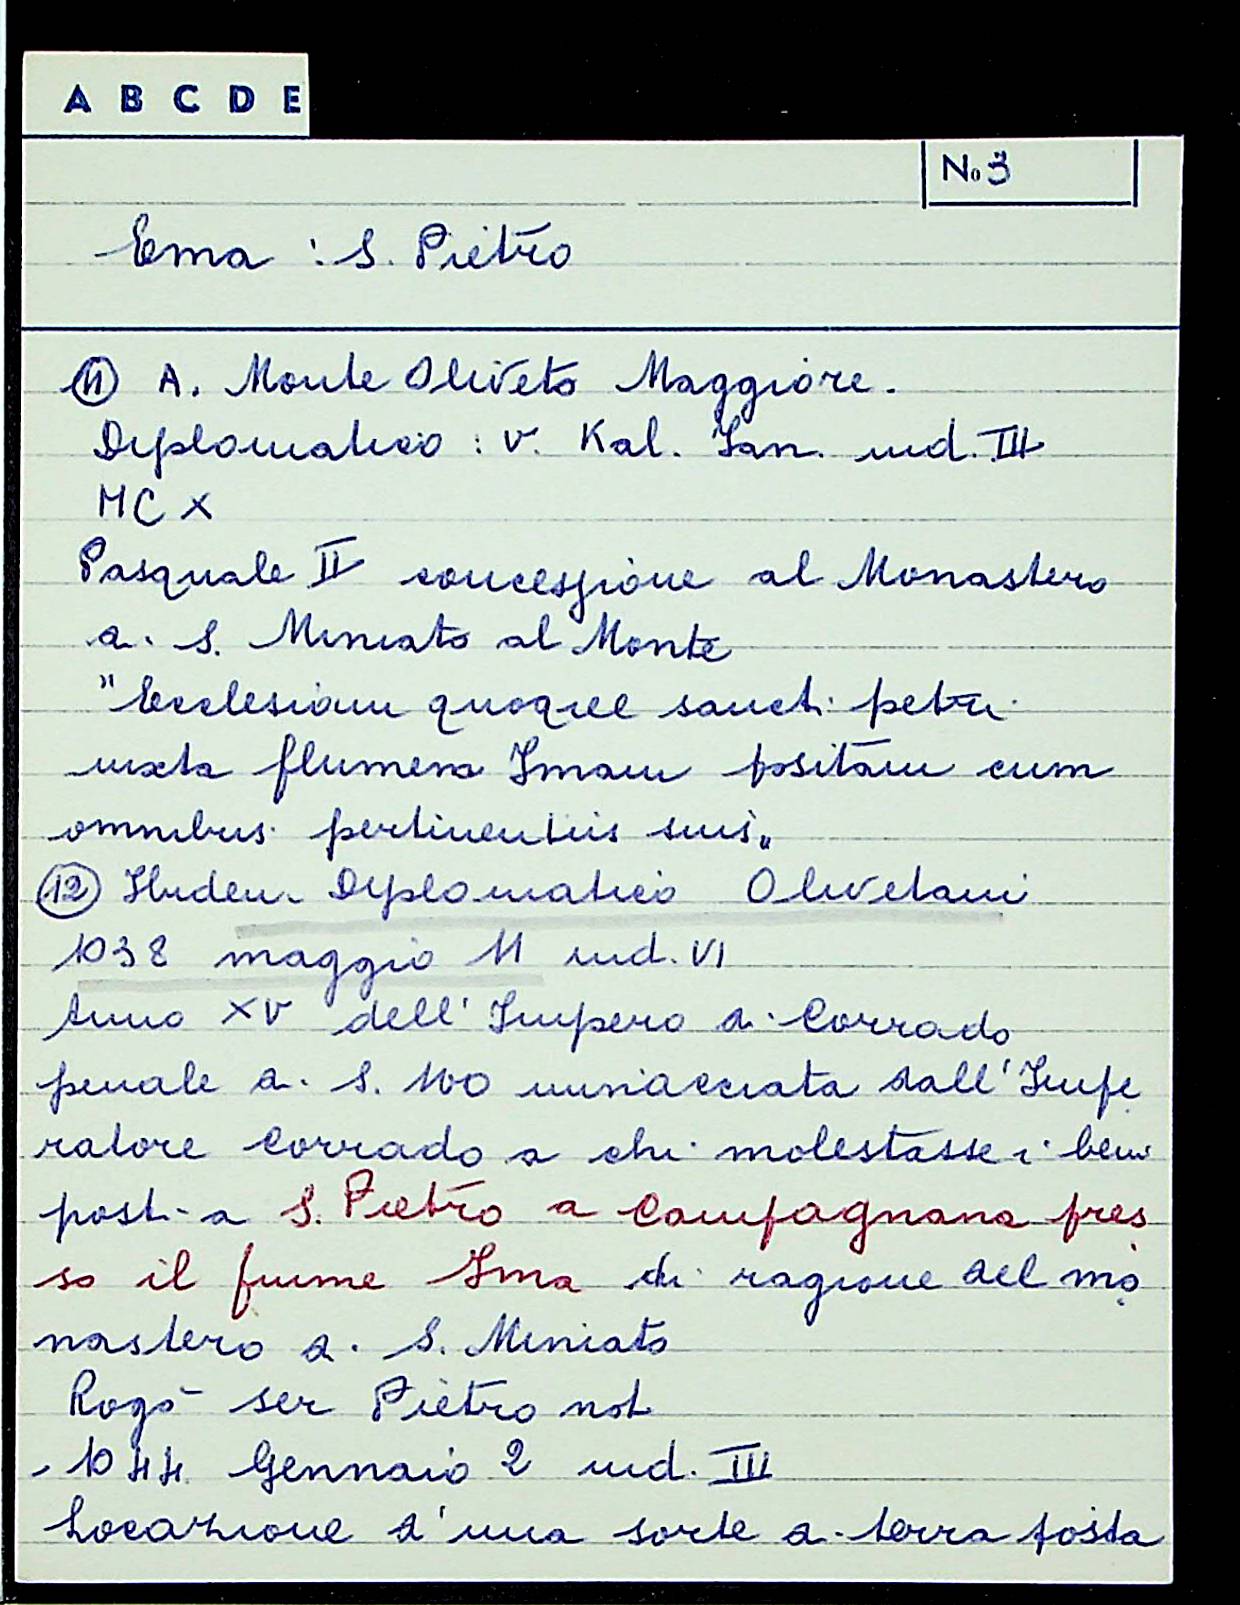 A B C D E
No 3
Ema : S. Pietro
11 A. Monte Oliveto Maggiore.
Diplomatico : V. Kal. Ian. ind. III
MCX
Pasquale II concessione al Monastero
di S. Miniato al Monte
"Ecclesiam quoque sancti petri
iuxta flumen Imam positam cum
omnibus pertinentiis suis„
12 Ibidem. Diplomatico Olivetani
1038 maggio 11 ind. VI
Anno XV dell'Impero di Corrado
penale di S. 100 minacciata dall'Impe
ratore Corrado a chi molestasse i beni
posti a S. Pietro a Campagnana pres
so il fiume Ima di ragione del mo
nastero di S. Miniato
Rogò ser Pietro not
- 1044 Gennaio 2 ind. III
Locazione d'una sorte di terra posta